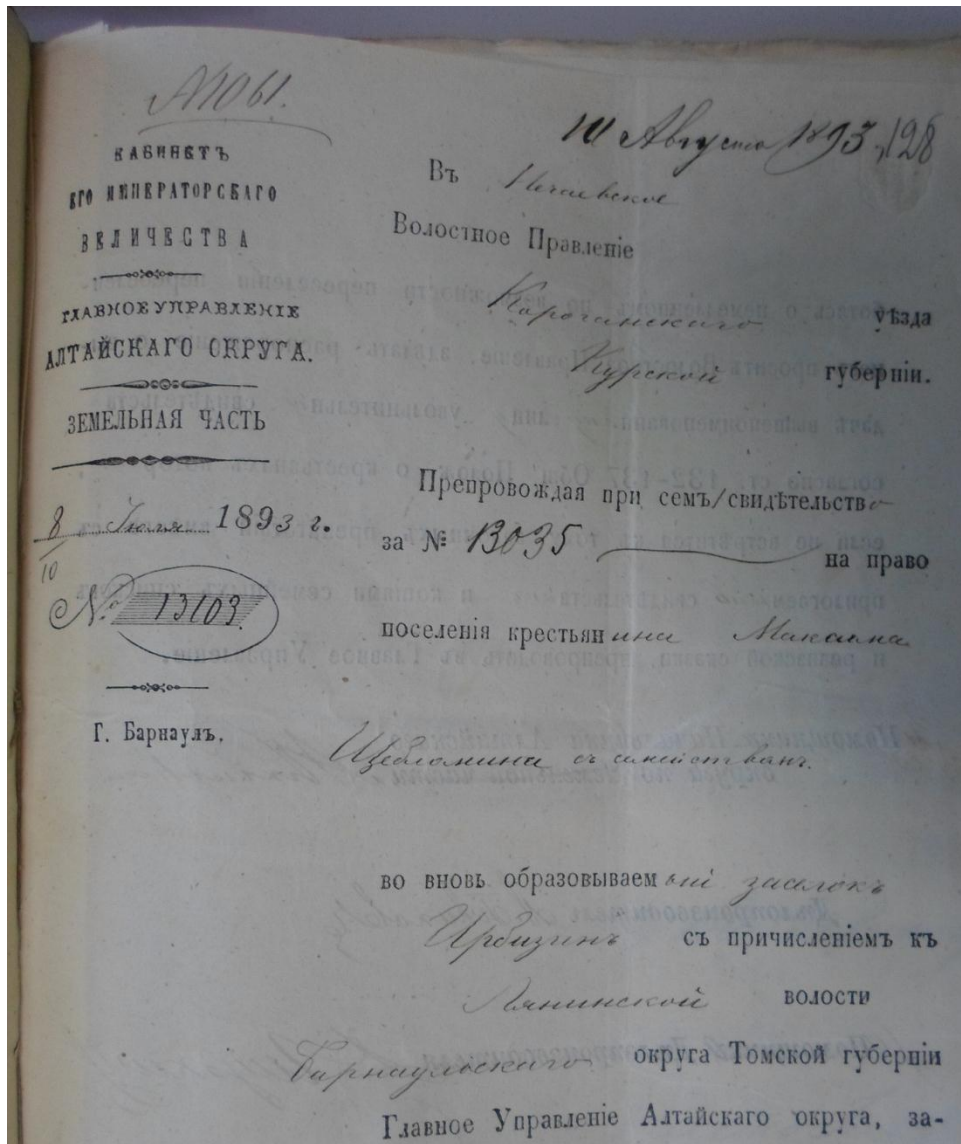 №1061.
КАБИНЕТЪ
ЕГО ИМПЕРАТОРСКАГО
ВЕЛИЧЕСТВА
ГЛАВНОЕ УПРАВЛЕНІЕ
АЛТАЙСКАГО ОКРУГА.
ЗЕМЕЛЬНАЯ ЧАСТЬ
8/10 Іюля 1893 г.
№ 13103.
Г. Барнаулъ.
10 Августа 1893, 128
Въ
Волостное Правленіе
Корочанскаго уѣзда
Курской губерніи.
Препровождая при семъ/свидѣтельство
за № 13035 на право
поселенія крестьянина
Щеблыкина съ семействомъ.
во вновь образовываемый заселокъ
Ирбизинъ съ причисленіемъ къ
Лянинской волости
Барнаульскаго округа Томской губерніи
Главное Управленіе Алтайскаго округа, за-